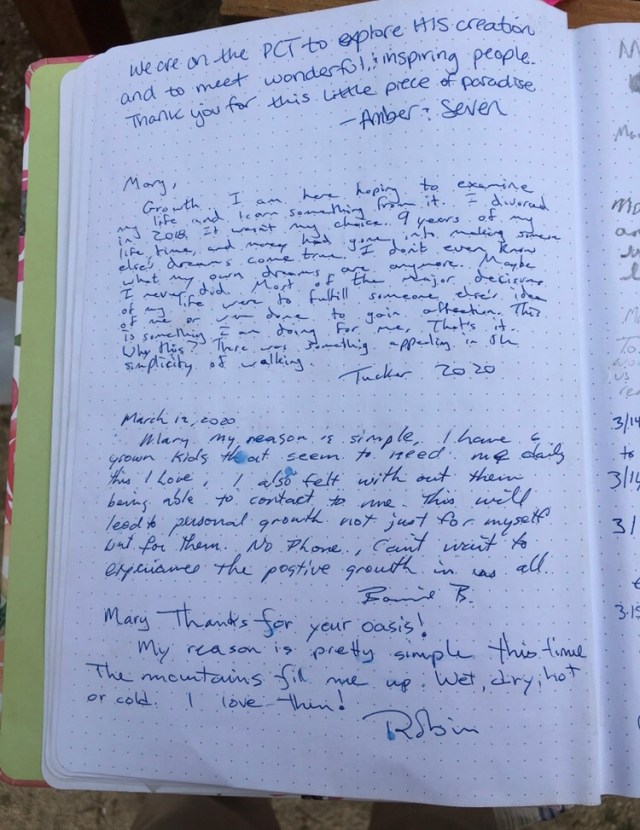 We are on the PCT to explore HIS creation
and to meet wonderful, & inspiring people.
Thank you for this little piece of paradise
- Amber & Seven
Mary,
Growth. I am here hoping to examine
my life and learn something from it. I divorced
in 2018. It wasn't my choice. 9 years of my
life, time, and money had gone into making someone
else's dreams come true. I don't even know
what my own dreams are anymore. Maybe
I never did. Most of the major decisions
of my life were to fulfill someone else's idea
of me or were done to gain affection. This
is something I am doing for me, That's it.
Why this? There was something appealing in the
simplicity of walking.
Tucker 2020
March 12, 2020
Mary my reason is simple, I have 6
grown kids that seem to need me daily
this I Love, I also felt with out them
being able to contact to me this will
lead to personal growth not just for myself
but for them. No Phone, Can't wait to
experience the postive growth in us all.
Bonnie B.
Mary Thanks for your oasis!
My reason is pretty simple this time
The mountains fill me up. Wet, dry, hot
or cold. I love them!
Robin
3/14
to
3/14
31
3.15